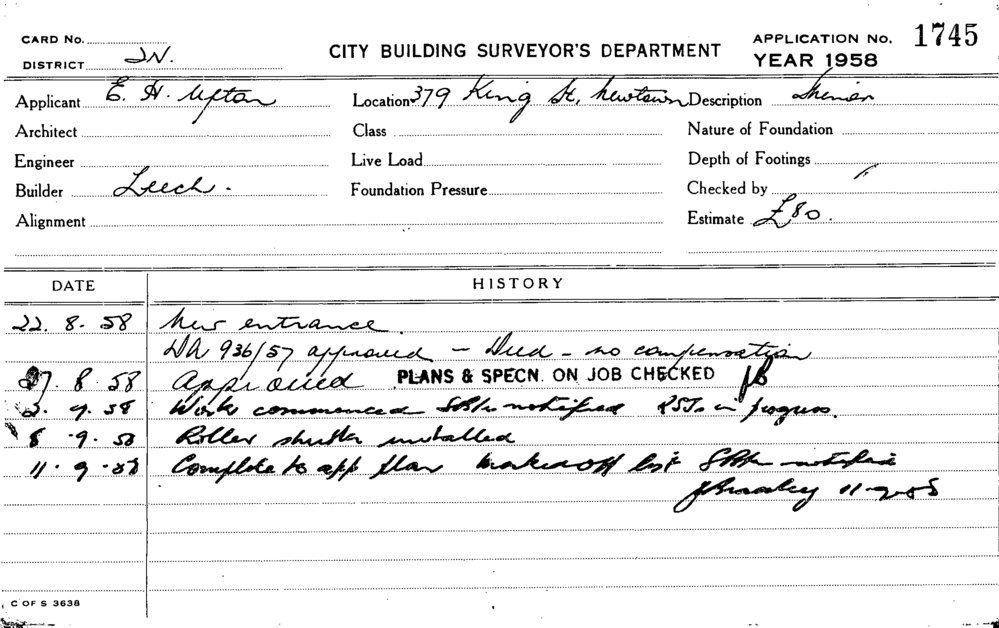 CARD No. APPLICATION No. 1745
DISTRICT CITY BUILDING SURVEYOR'S DEPARTMENT YEAR 1958
Applicant E. H. Upton Location 379 King St, Newtown Description
Architect Class Nature of Foundation
Engineer Live Load Depth of Footings
Builder Leech. Foundation Pressure Checked by
Alignment Estimate £80.
DATE HISTORY
22. 8. 58 New entrance.
DA 936/57 approved - Deed - no compensation
27. 8. 58 Approved PLANS & SPECN. ON JOB CHECKED
3. 9. 58 Work commenced notified in progress.
8. 9. 58 Roller shutter installed
11. 9. 58 Complete to app plan marked off list notified
11-9-58
C OF S 3638